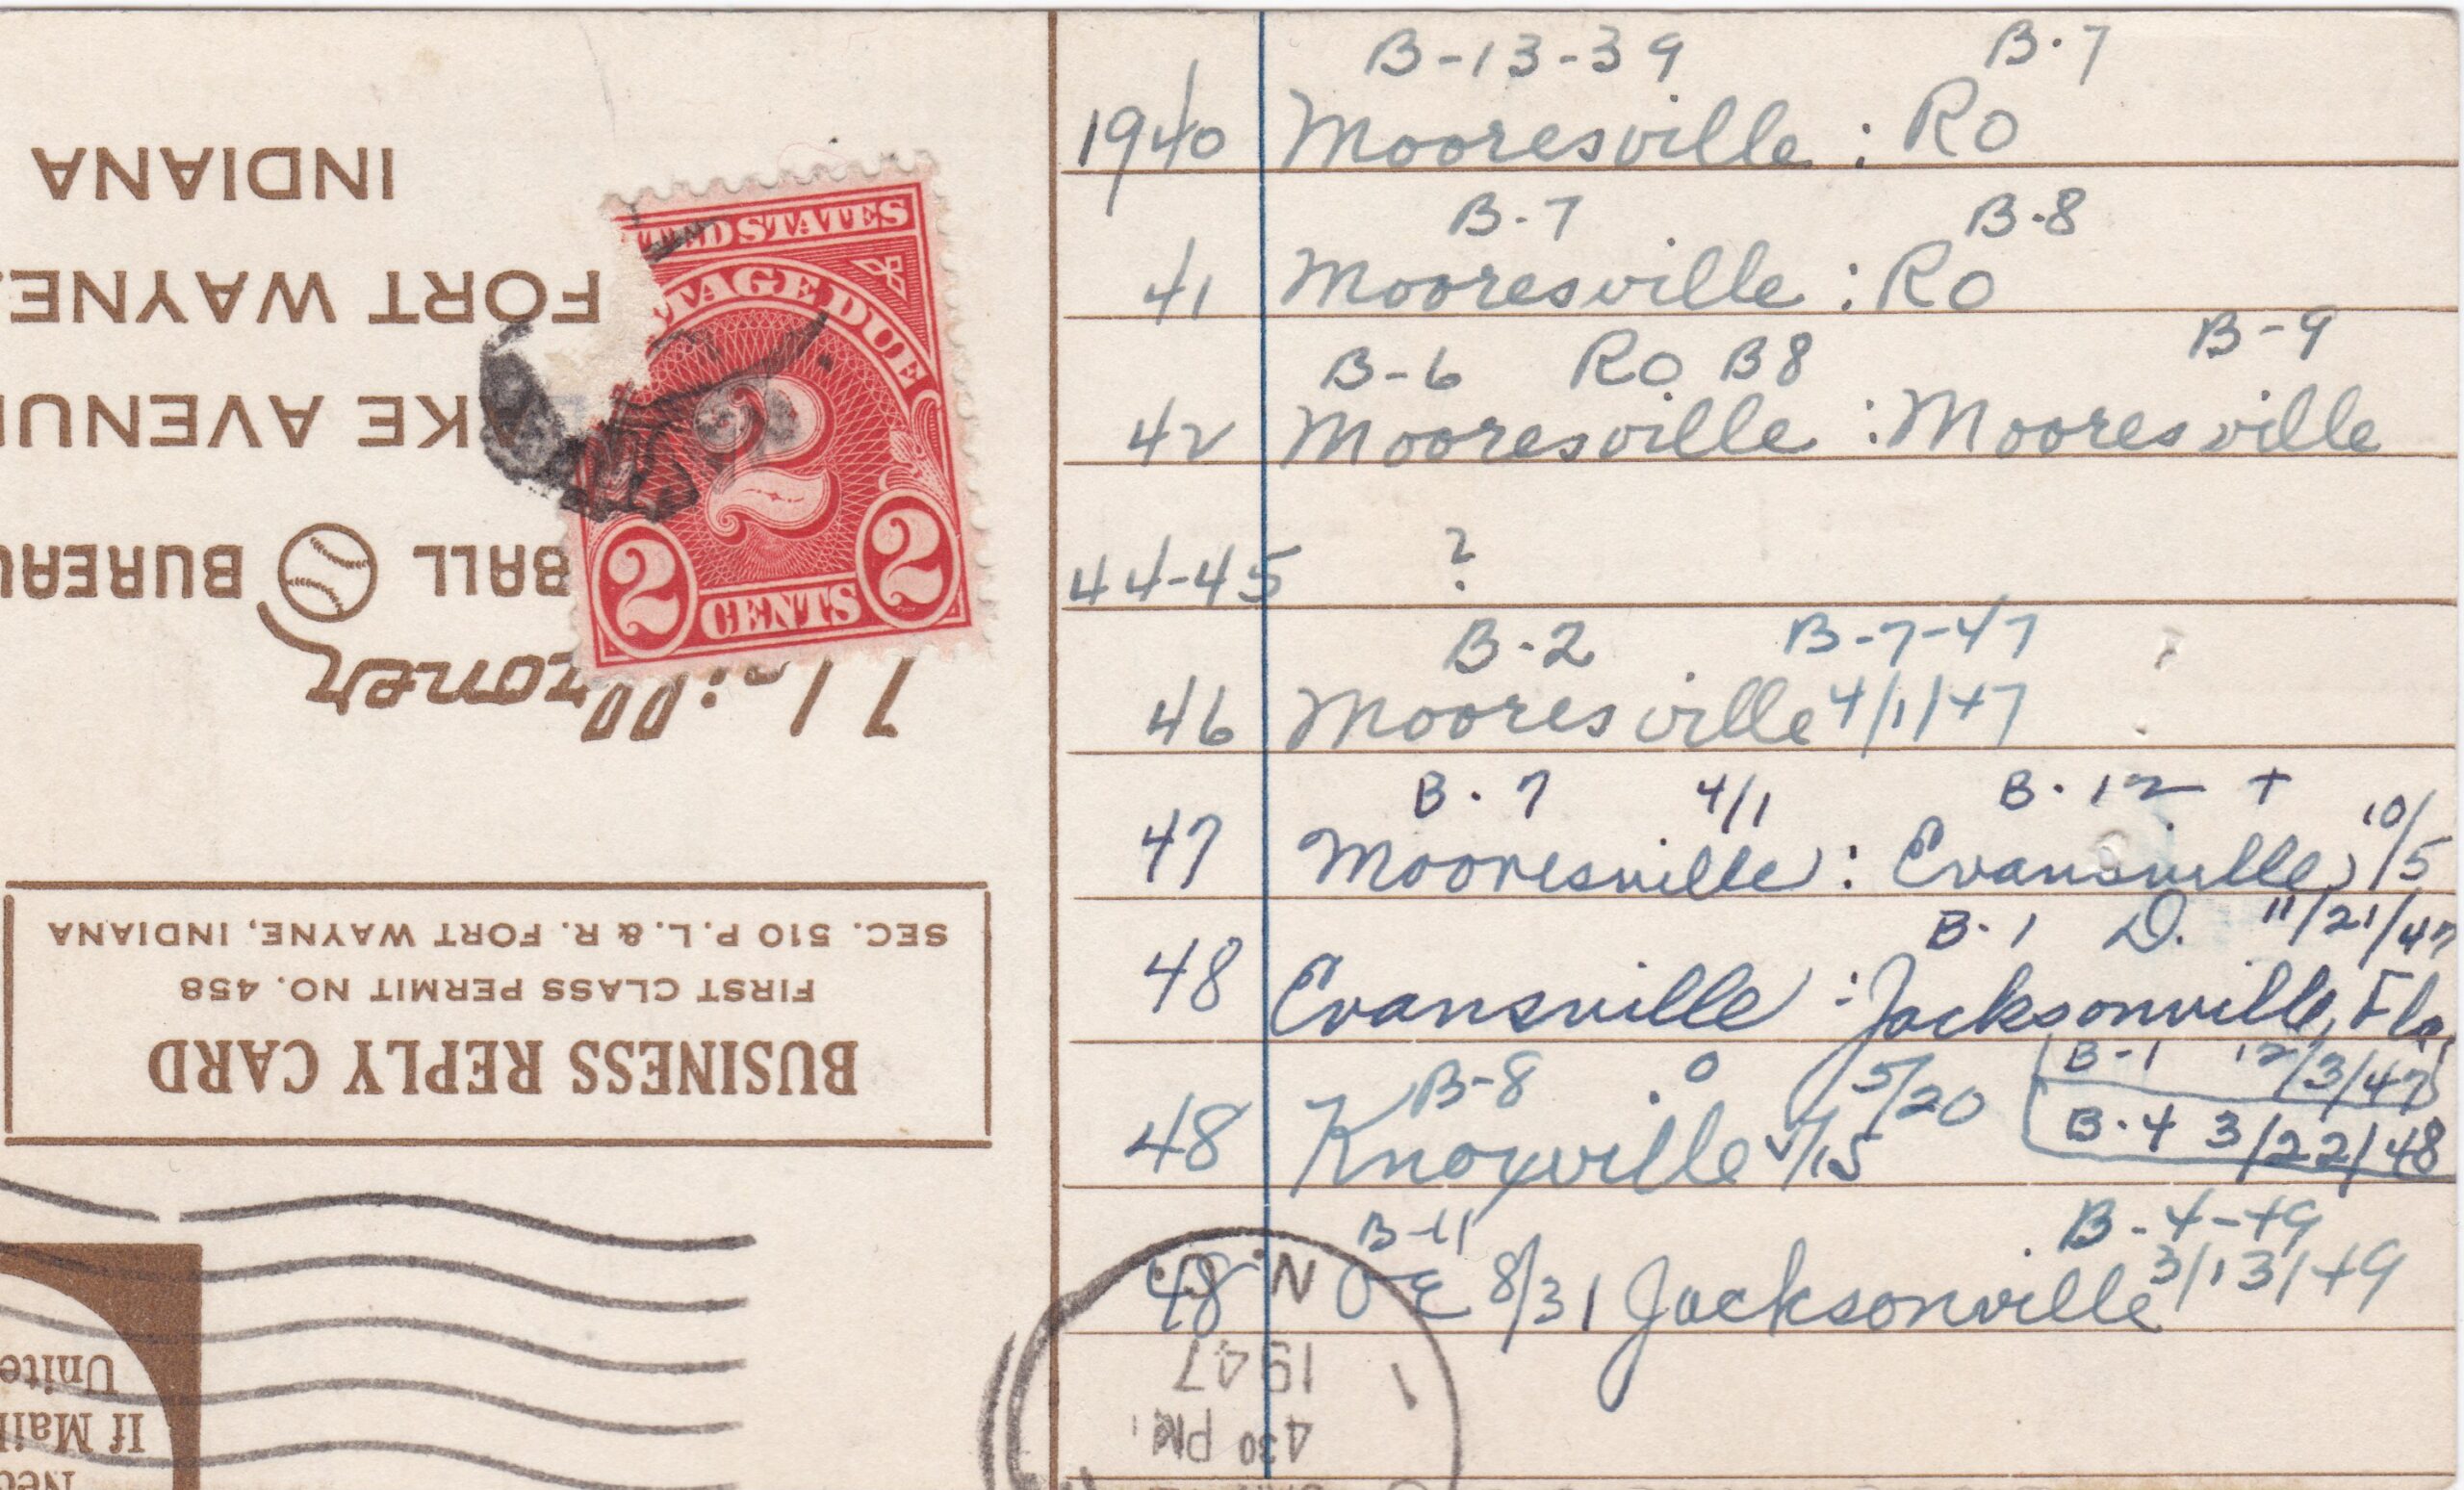 B-13-39 B-7
1940 Mooresville : RO
B-7 B-8
41 Mooresville : RO
B-6 RO B8 B-9
42 Mooresville : Mooresville
44-45 ?
B-2 B-7-47
46 Mooresville 4/1/47
B-7 4/1 B-12 +
47 Mooresville : Evansville 10/5
B-1 D. 11/21/47
48 Evansville : Jacksonville, Fla.
B-1 12/3/47
B-8 O 5/20
48 Knoxville 4/15
B-4 3/22/48
B-11 B-4-49
48 8/31 Jacksonville 3/13/49
UNITED STATES
POSTAGE DUE
2
2 CENTS 2
BUSINESS REPLY CARD
FIRST CLASS PERMIT NO. 458
SEC. 510 P. L. & R. FORT WAYNE, INDIANA
BALL BUREAU
AKE AVENUE
FORT WAYNE
INDIANA
430 PM
1947
N.
If Mail
Unite